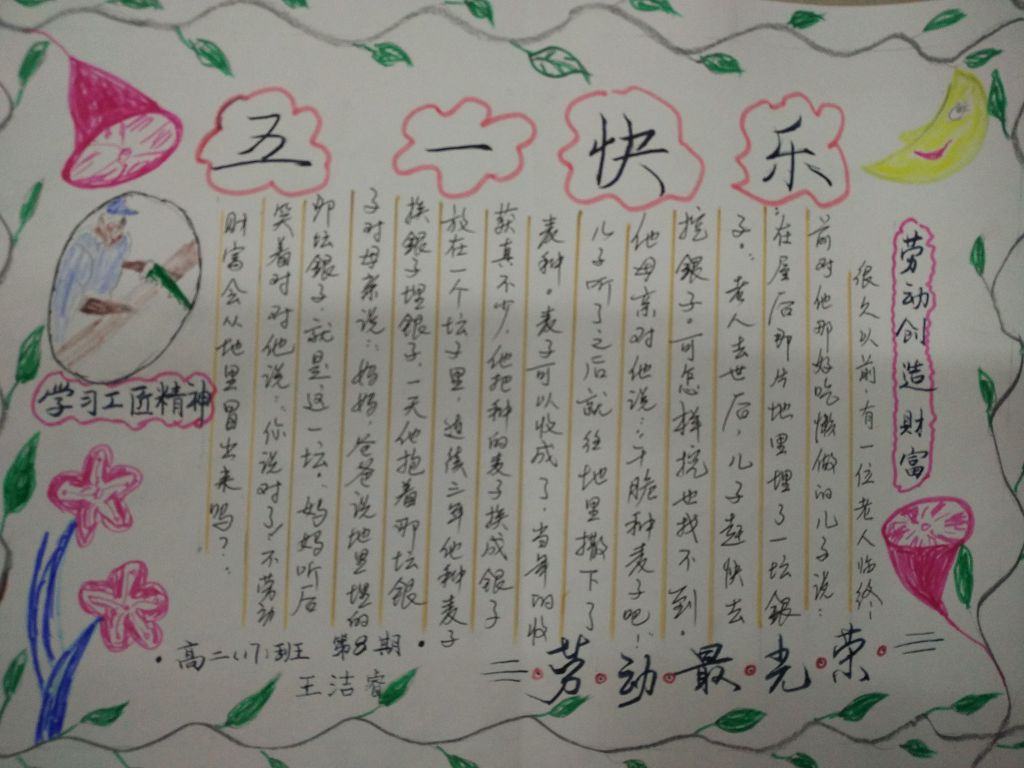 五一快乐
劳动创造财富
很久以前,有一位老人临终
前对他那好吃懒做的儿子说:
在屋后那片地里埋了一坛銀
子。老人去世后,儿子赶快去
挖銀子。可怎样挖也找不到.
他母亲对他说:干脆种麦子吧!
儿子听了之后就往地里撒下了
麦种。麦子可以收成了,当年的收
获真不少,他把种的麦子换成銀子
放在一个坛子里,连续三年他种麦子
换銀子埋銀子,一天他抱着那坛銀
子对母亲说:妈妈,爸爸说地里埋的
那坛銀子,就是这一坛。妈妈听后
笑着对对他说:你说对了!不劳动
财富会从地里冒出来吗?
学习工匠精神
高二(17)班 第8期
王洁睿
劳动最光荣